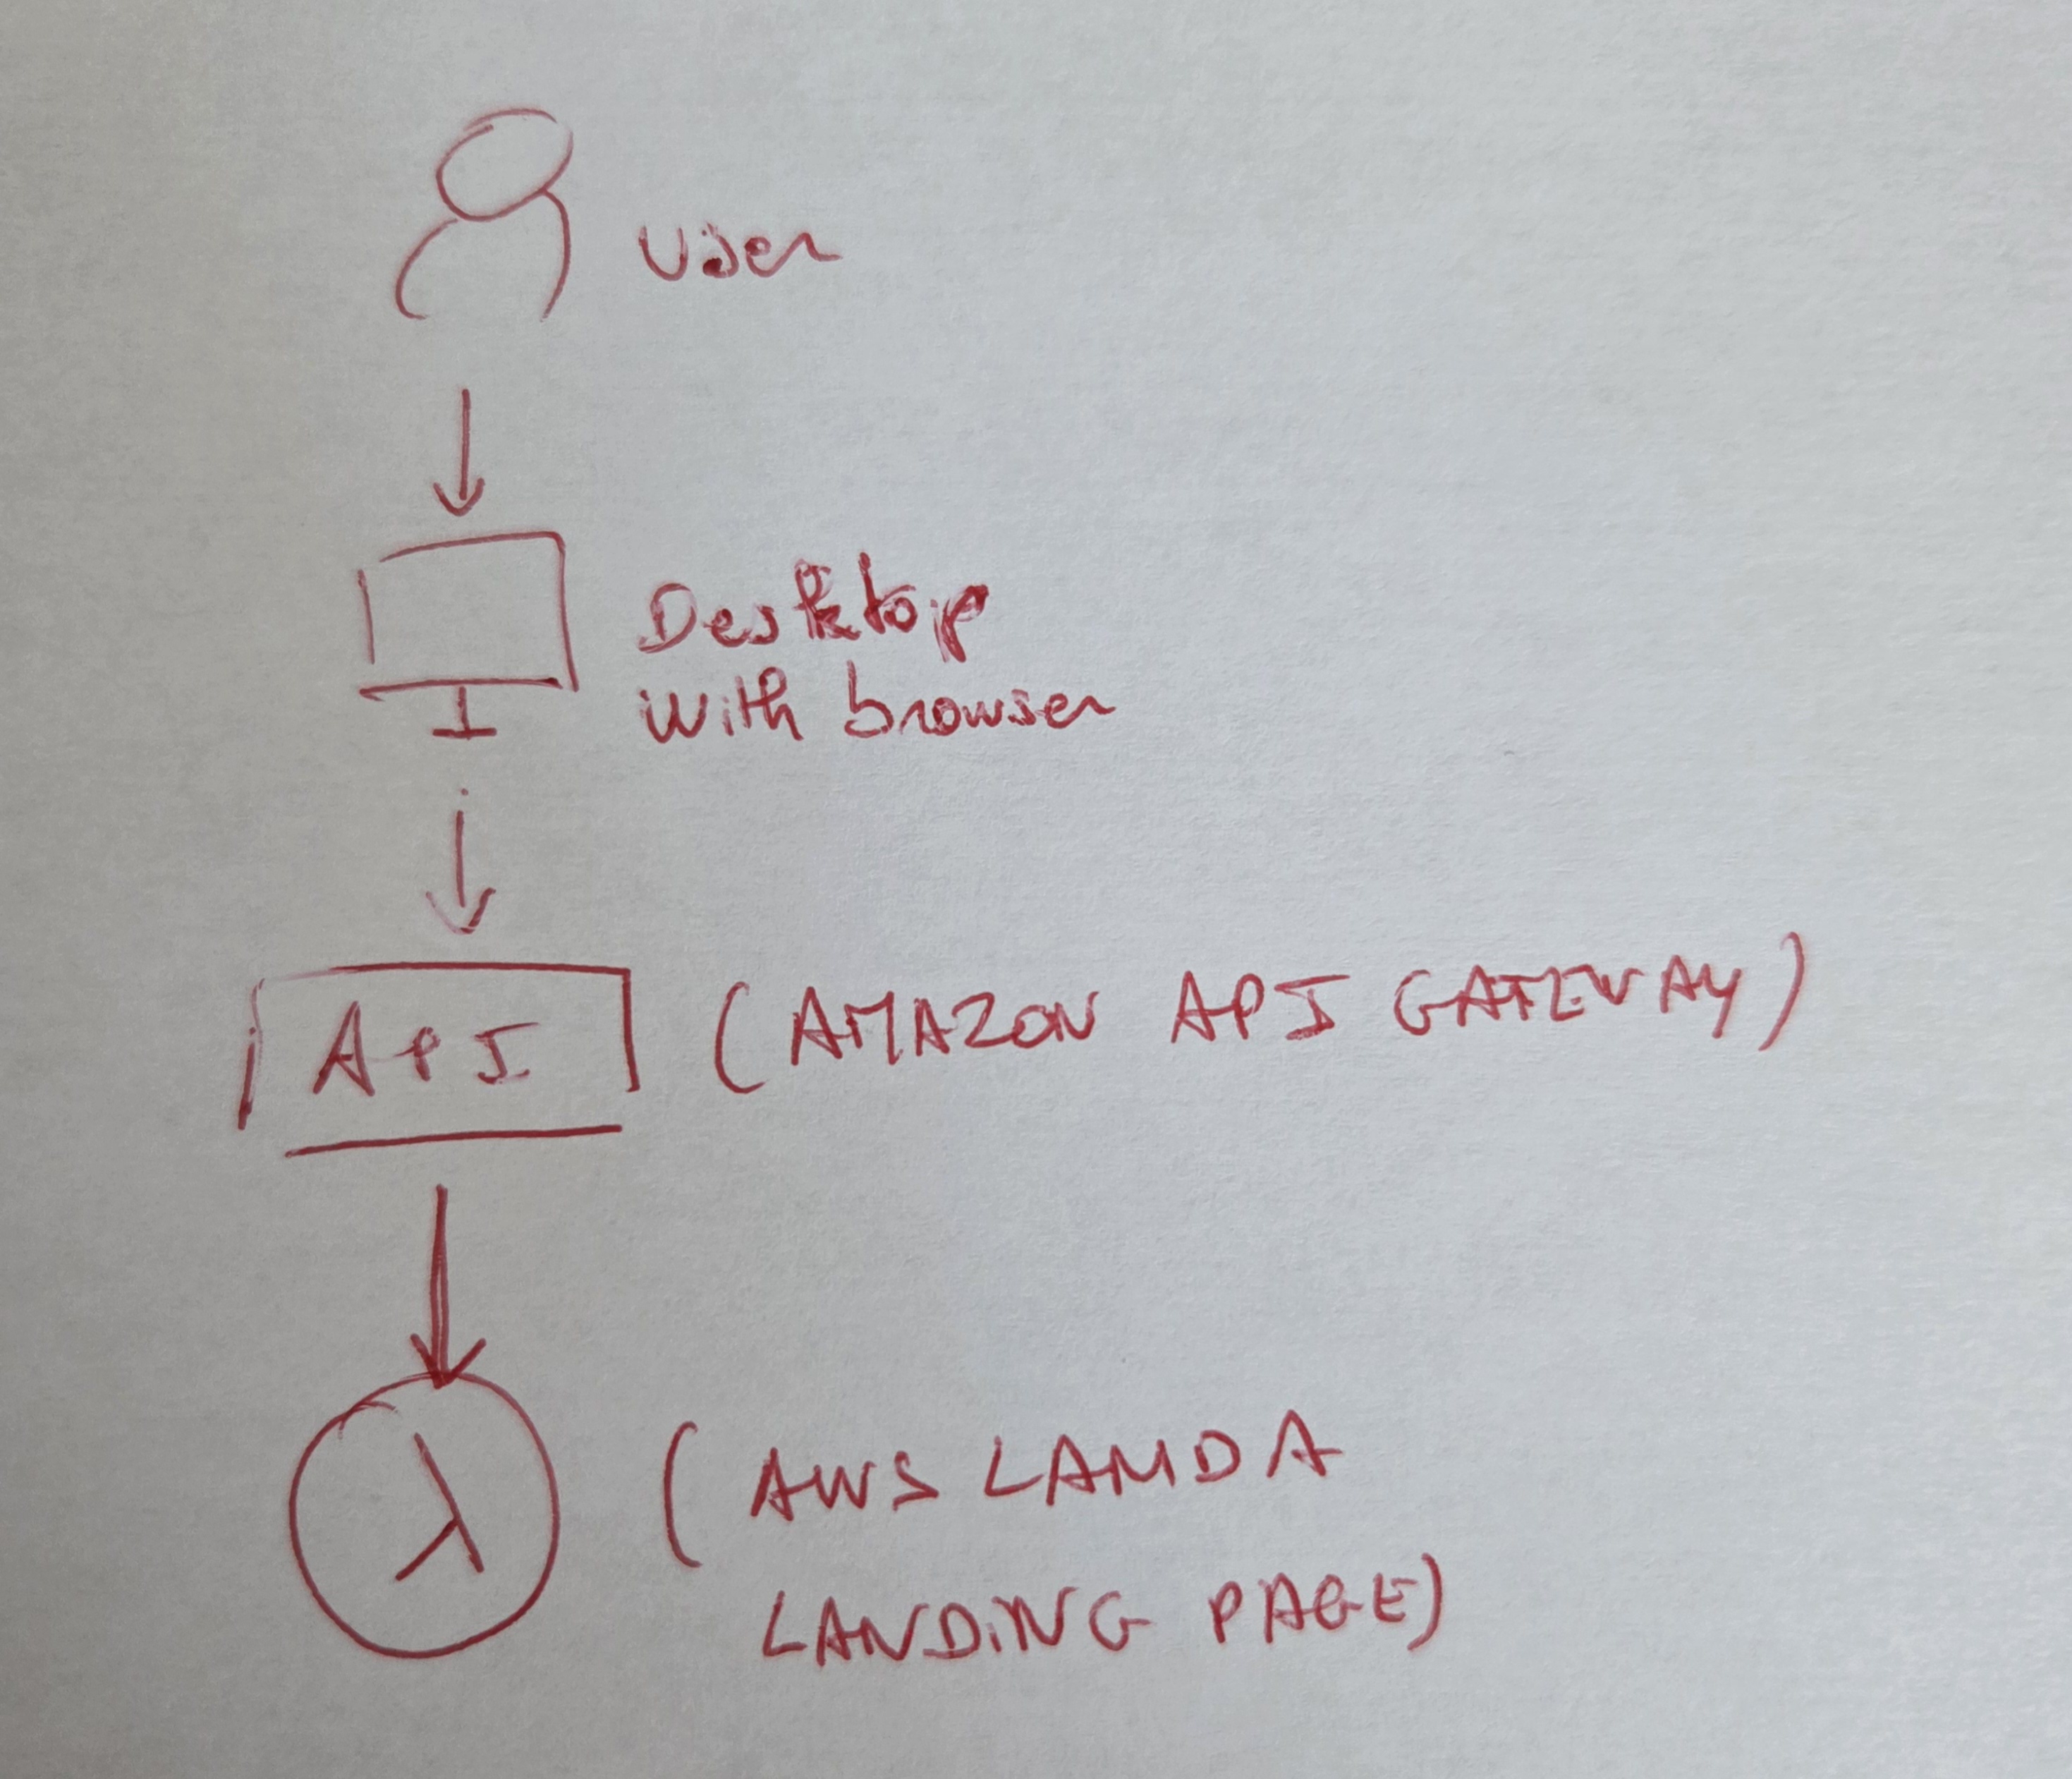 User
Desktop
with browser
API
(AMAZON API GATEWAY)
λ
(AWS LAMDA
LANDING PAGE)